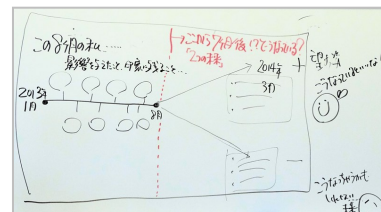 この8ヶ月の私……
影響を与えたこと、印象に残ること…
ここから7ヶ月後!?どうなっている?
2つの未来
2013年
1月
8月
2014年
3月
+
こうなっているといいな!
−
こうなっちゃうかも
しれない